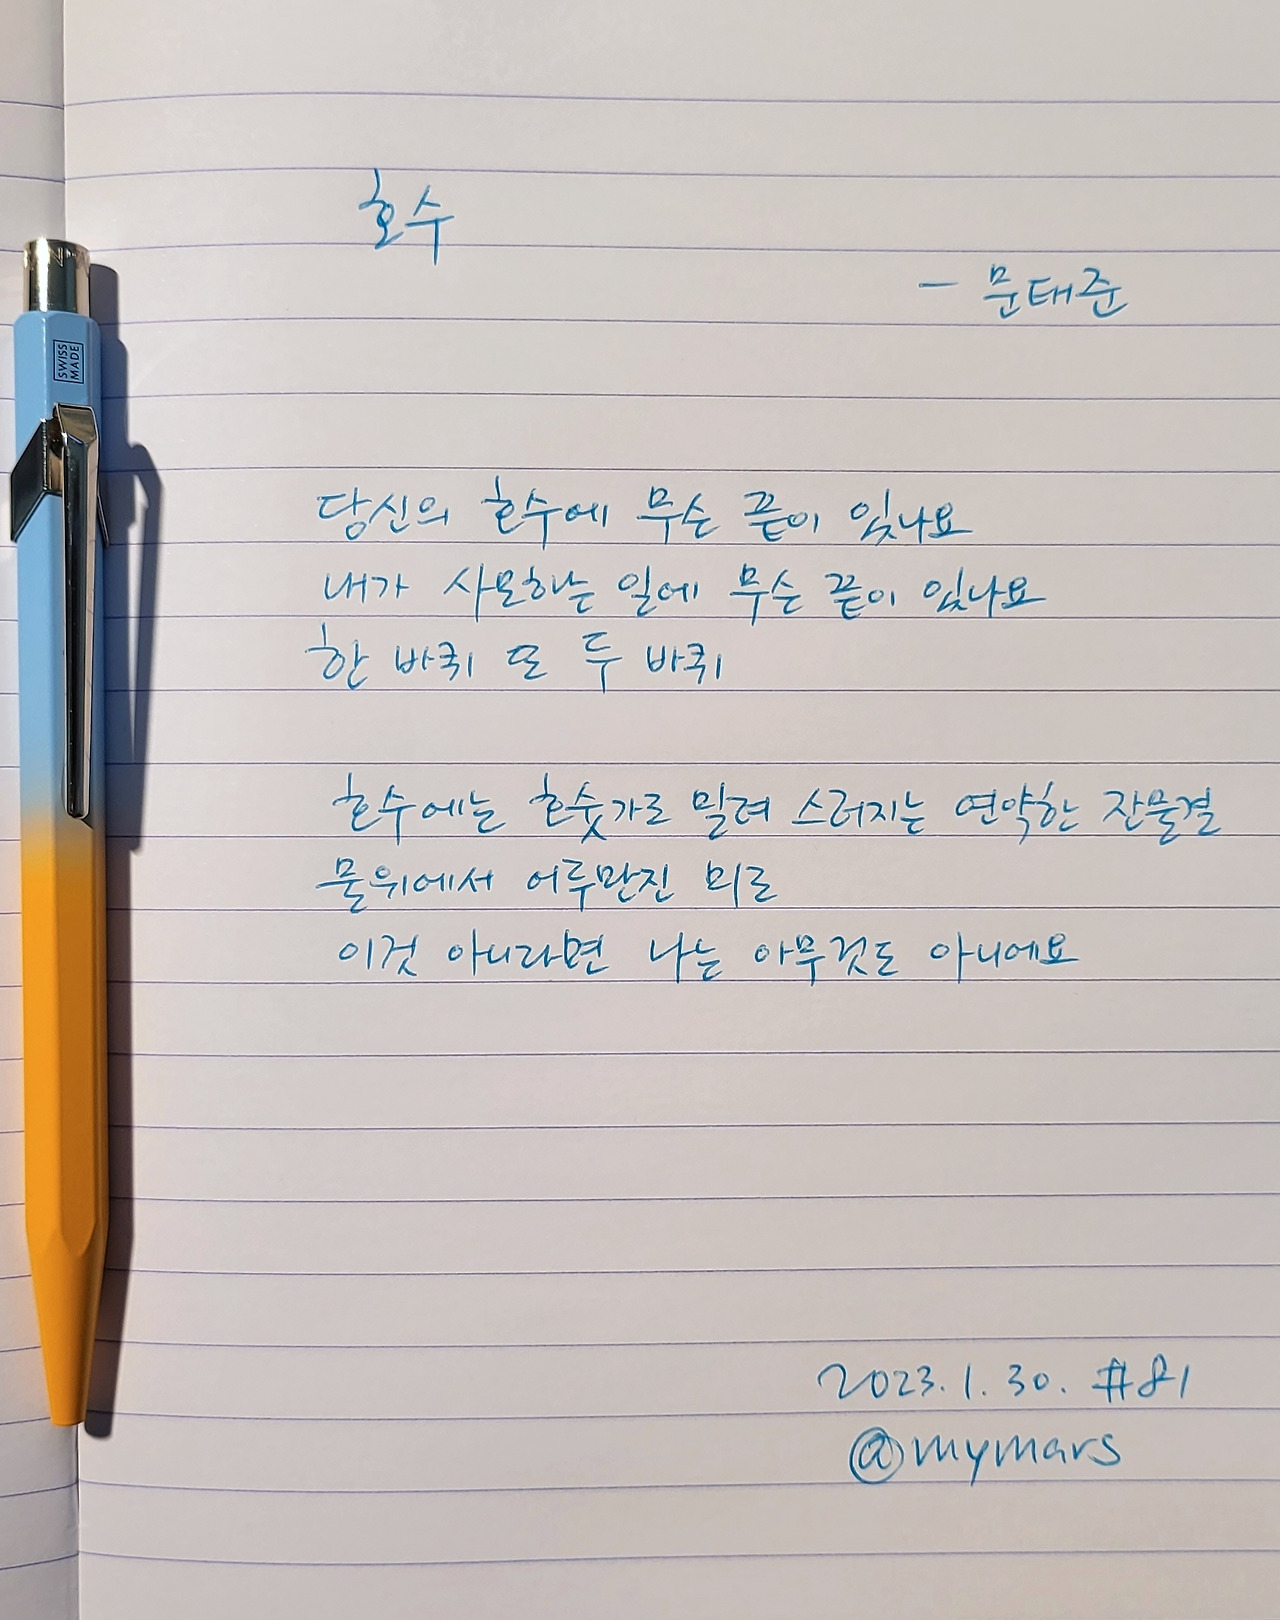 호수
- 문태준
SWISS
MADE
당신의 호수에 무슨 끝이 있나요
내가 사모하는 일에 무슨 끝이 있나요
한 바퀴 또 두 바퀴
호수에는 호숫가로 밀려 스러지는 연약한 잔물결
물위에서 어루만진 미로
이것 아니라면 나는 아무것도 아니에요
2023.1.30. #81
@mymars